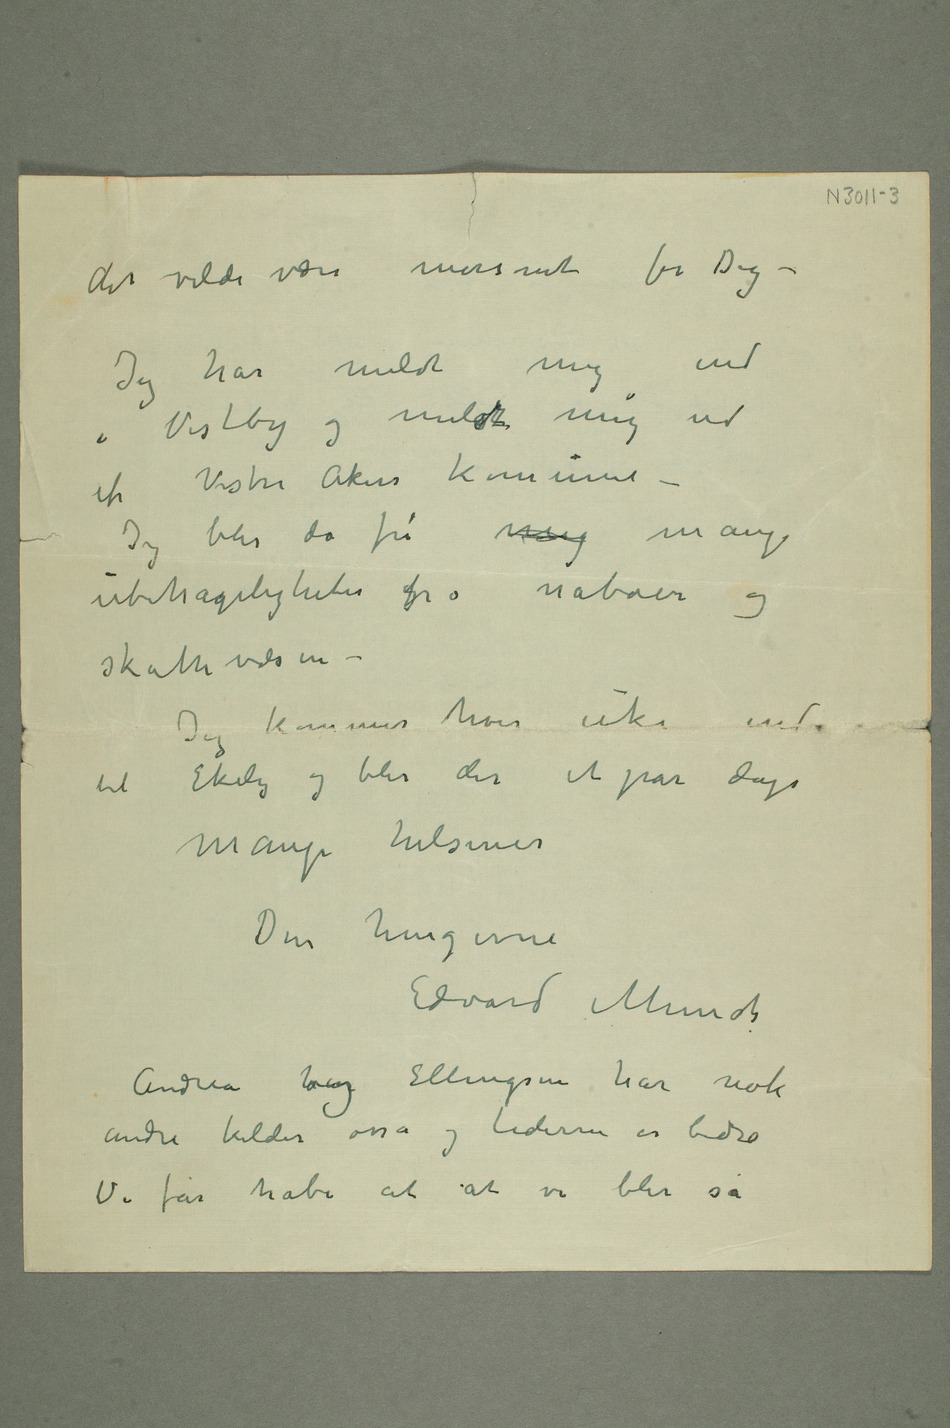 N3011-3
det vilde være morsomt for Dig –
Jeg har meldt mig ind
i Vestby og meldt mig ud
af Vestre Akers Komune –
Jeg blir da fri mig mange
ubehageligheter fra naboer og
skattevæsen –
Jeg kommer hver uke ind
til Ekely og blir der et par dage
Mange hilsener
Din hengivne
Edvard Munch
Andrea og Ellingsen har nok
andre kilder osså og tiderne er bedre
Vi får håbe at at vi blir så